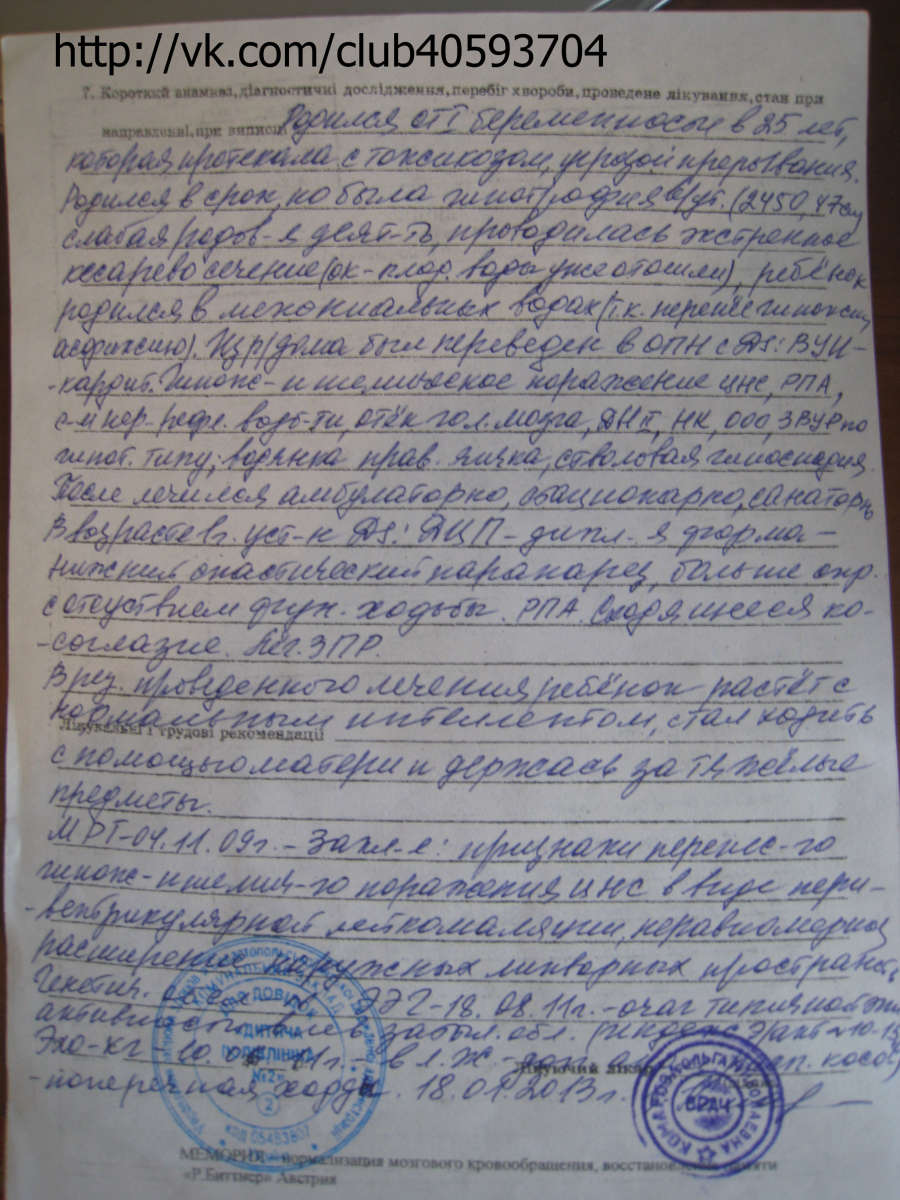 http://vk.com/club40593704
7. Короткий анамназ, діагностичні дослідження, перебіг хвороби, проведене лікування, стан при
направленні, при виписці Родился от I беременности в 25 лет,
которая протекала с токсикозом, угрозой прерывания.
Родился в срок, но была гипотрофия в/ут. (2450, 47см
слабая родов-я деят-ть, проводилась экстренное
кесарево сечение (ок-плод. воды уже отошли), ребёнок
родился в мекониальных водах (т.к. перенёс гипоксию
асфиксию). Из р/дома был переведен в ОПН с Ds: ВУИ-
-кардит. Гипокс-ишемическое поражение ЦНС, РПА,
с-м нер-рефл. возб-ти, отёк гол. мозга, ДН II, НК, ООО, ЗВУР по
гипот. типу; водянка прав. яичка, стволовая гипоспадия.
После лечился амбулаторно, стационарно, санаторно
В возрасте 1г. уст-н Ds: ДЦП - дипл.-я форма -
нижний спастический парапарез, больше спр.
с отсуствием фун. ходьбы. РПА. Сходящееся ко-
-соглазие. Лёг. ЗПР.
В рез. проведенного лечения ребёнок растёт с
нормальным интеллектом, стал ходить
Лікувальні і трудові рекомендації
с помощью матери и держась за тяжёлые
предметы.
МРТ-04.11.09г. - Закл-е: признаки перенес-го
гипокс-ишемич-го поражения ЦНС в виде пери-
-вентрикулярной лейкомаляции, неравномерное
расширение наружных ликворных пространств
ЭЭГ-18.08.11г. - очаг типичной эпи
активности в затыл. обл. (индекс Э/акт ~10-15
Эхо-КГ 10. 11г. - в л.ж - косо
-поперечная хорда. 18.01.2013г.
Лікуючий лікар
ДЛЯ ДОВІДОК
ДИТЯЧА
ПОЛІКЛІНІКА
№2
2
КОД 05483807
ОЛЬГА
ВРАЧ
МЕМОРИЯ - нормализация мозгового кровообращения, восстановление памяти
«Р.Биттнер» Австрия